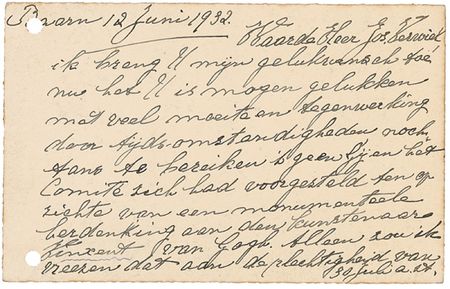 Baarn 12 Juni 1932.
Waarde Heer Jos. Verwiel
ik breng U mijn gelukwensch toe
nu het U is mogen gelukken
met veel moeite en tegenwerking
door tijdsomstandigheden noch
tans te bereiken 'tgeen Gij en het
Comité zich had voorgesteld ten op
zichte van een monumenteele
herdenking aan den kunstenaar
Vincent van Gogh. Alleen zou ik
vreezen dat aan de plechtigheid van
30 Juli a.st.